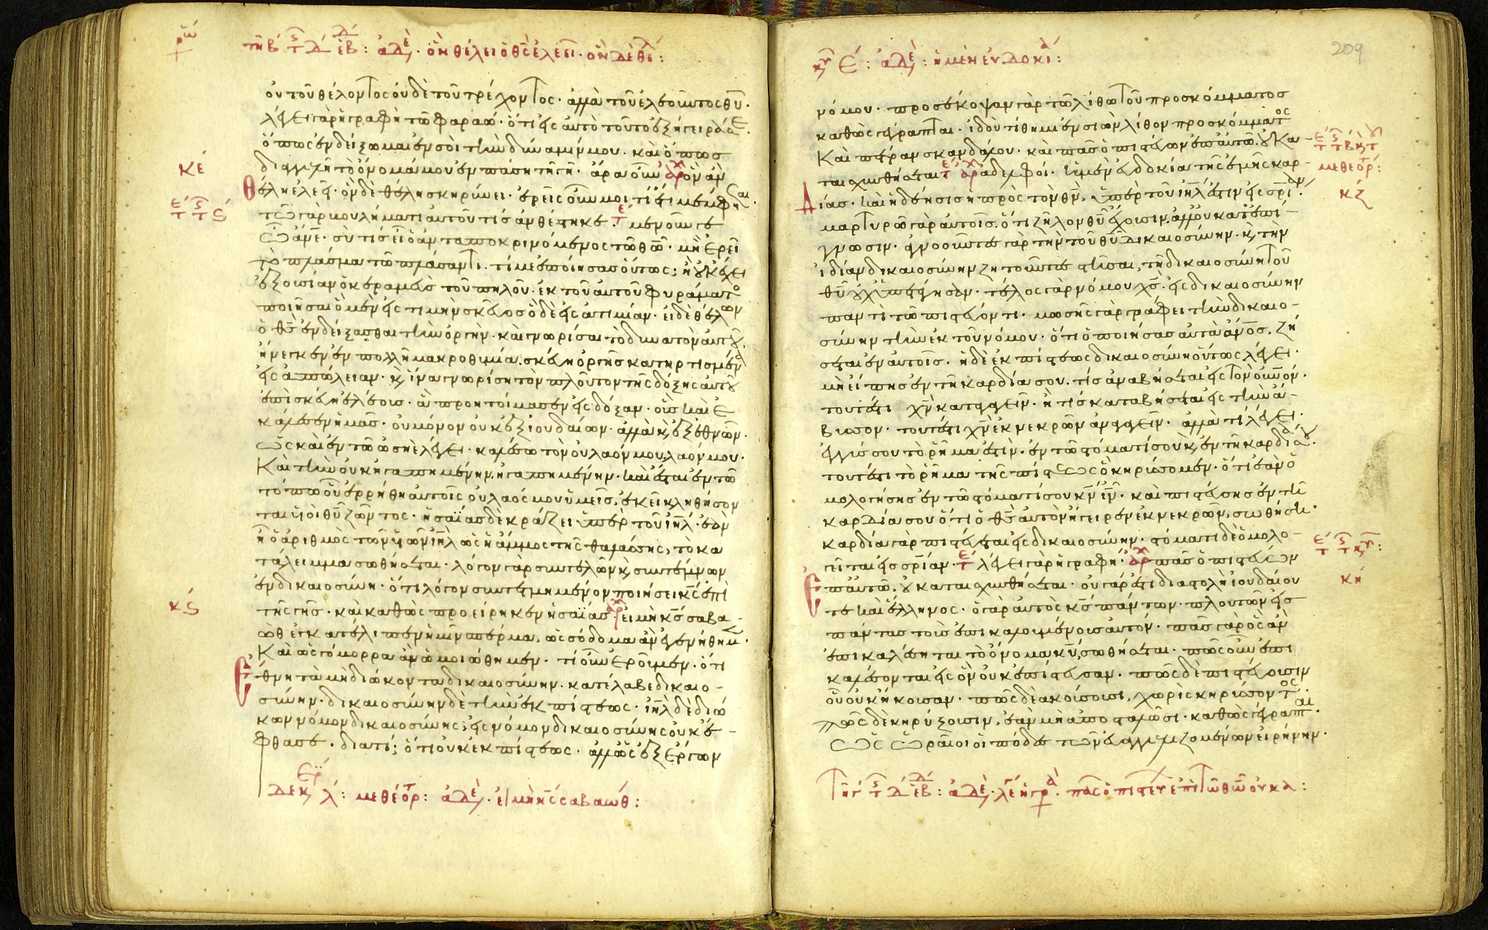 τῆ β ς Δ ἑβ: ἀδε· ὃν θέλει ὁ θς ἐλεεῖ· ὃν δὲ θέλ:
οὐ τοῦ θέλοντος οὐδὲ τοῦ τρέχοντος· ἀλλὰ τοῦ ἐλεοῦντος θυ·
λέγει γὰρ ἡ γραφὴ τῶ φαραώ· ὅτι εἰς αὐτὸ τοῦτο ἐξήγειρά σε·
ὅπως ἐνδείξωμαι ἐν σοὶ τὴν δύναμίν μου· καὶ ὅπως
κε διαγγελῆ τὸ ὄνομά μου ἐν πάση τῆ γῆ· ἄρα οὖν ἀρχ ὃν ἂν
θέλη ἐλεεῖ· ὃν δὲ θέλη σκληρύνει· ἐρεῖς οὖν μοι τί ἔτι μέμφεται·
τῶ γὰρ βουλήματι αὐτοῦ τίς ἀνθέστηκε· μενοῦνγε
ὦ ἄνε· σὺ τίς εἶ ὁ ἀνταποκρινόμενος τῶ θῶ· μὴ ἐρεῖ
τὸ πλάσμα τῶ πλάσαντι· τί με ἐποίησας οὕτως; ἢ οὐκ ἔχει
ἐξουσίαν ὁ κεραμεὺς τοῦ πηλοῦ· ἐκ τοῦ αὐτοῦ φυράματος
ποιῆσαι ὃ μὲν εἰς τιμὴν σκεῦος ὃ δὲ εἰς ἀτιμίαν· εἰ δὲ θέλων
ὁ θς ἐνδείξασθαι τὴν ὀργὴν· καὶ γνωρίσαι τὸ δυνατὸν αὐτοῦ,
ἤνεγκεν ἐν πολλῆ μακροθυμία· σκεύη ὀργῆς κατηρτισμένα
εἰς ἀπώλειαν· κ ἵνα γνωρίση τὸν πλοῦτον τῆς δόξης αὐτοῦ
ἐπὶ σκεύη ἐλέους· ἃ προητοίμασεν εἰς δόξαν· οὓς καὶ ἐ
κάλεσεν ἡμᾶς· οὐ μόνον οὐκ ἐξ ἰουδαίων· ἀλλὰ κ ἐξ ἐθνῶν·
ὡς καὶ ἐν τῶ ὡσηὲ λέγει· καλέσω τὸν οὐ λαόν μου, λαόν μου·
καὶ τὴν οὐκ ἠγαπημένην, ἠγαπημένην· καὶ ἔσται ἐν τῶ
τόπω οὗ ἐρρήθη αὐτοῖς οὐ λαός μου ὑμεῖς, ἐκεῖ κληθήσον
ται υἱοὶ θυ ζῶντος· ἡσαΐας δὲ κράζει ὑπὲρ τοῦ ιηλ· ἐὰν
ἦ ὁ ἀριθμὸς τῶν υἱῶν ιηλ ὡς ἡ ἄμμος τῆς θαλάσσης, τὸ κα
τάλειμμα σωθήσεται· λόγον γὰρ συντελῶν κ συντέμνων
ἐν δικαιοσύνη· ὅτι λόγον συντετμημένον ποιήσει κς ἐπὶ
κς τῆς γῆς· καὶ καθὼς προείρηκεν ἡσαΐας· ἀρχ εἰ μὴ κς σαβα-
ὼθ ἐγκατέλιπεν ἡμῖν σπέρμα, ὡς σόδομα ἂν ἐγενήθημεν·
καὶ ὡς γόμορρα ἂν ὡμοιώθημεν· τί οὖν ἐροῦμεν· ὅτι
ἔθνη τὰ μὴ διώκοντα δικαιοσύνην, κατέλαβε δικαιο-
σύνην· δικαιοσύνην δὲ τὴν ἐκ πίστεως· ιηλ δὲ διώ
κων νόμον δικαιοσύνης, εἰς νόμον δικαιοσύνης οὐκ ἔ-
φθασε· διατί; ὅτι οὐκ ἐκ πίστεως· ἀλλ' ὡς ἐξ ἔργων
μεθέορ: ἀδε· εἰ μὴ κς σαβαώθ:
κυ ε: ἀδε: ἡ μὲν εὐδοκία:
209
νόμου· προσέκοψαν γὰρ τῶ λίθω τοῦ προσκόμματος
καθὼς γέγραπται· ἰδοὺ τίθημι ἐν σιὼν λίθον προσκόμματος
καὶ πέτραν σκανδάλου· καὶ πᾶς ὁ πιστεύων ἐπ' αὐτῶ, οὐ κα-
ταισχυνθήσεται· ἀρχ ἀδελφοί· ἡ μὲν εὐδοκία τῆς ἐμῆς καρ-
μεθέορ:
κζ
δίας· καὶ ἡ δέησις ἡ πρὸς τὸν θν, ὑπὲρ τοῦ ιηλ ἐστιν εἰς σρίαν·
μαρτυρῶ γὰρ αὐτοῖς, ὅτι ζῆλον θυ ἔχουσιν, ἀλλ' οὐ κατ' ἐπί-
γνωσιν· ἀγνοοῦντες γὰρ τὴν τοῦ θυ δικαιοσύνην· κ τὴν
ἰδίαν δικαιοσύνην ζητοῦντες στῆσαι, τῆ δικαιοσύνη τοῦ
θυ οὐχ ὑπετάγησαν· τέλος γὰρ νόμου χς· εἰς δικαιοσύνην
παντὶ τῶ πιστεύοντι· μωσῆς γὰρ γράφει τὴν δικαιο-
σύνην τὴν ἐκ τοῦ νόμου· ὅτι ὁ ποιήσας αὐτὰ ἄνος, ζή
σεται ἐν αὐτοῖς· ἡ δὲ ἐκ πίστεως δικαιοσύνη οὕτως λέγει·
μὴ εἴπης ἐν τῆ καρδία σου· τίς ἀναβήσεται εἰς τὸν οὐνόν·
τουτέστι χν καταγαγεῖν· ἢ τίς καταβήσεται εἰς τὴν ἄ-
βυσσον· τουτέστι χν ἐκ νεκρῶν ἀναγαγεῖν· ἀλλὰ τί λέγει·
ἐγγύς σου τὸ ῥῆμα ἐστιν· ἐν τῶ στόματί σου κ ἐν τῆ καρδία σου·
τουτέστι τὸ ῥῆμα τῆς πίστεως ὃ κηρύσσομεν· ὅτι ἐὰν ὁ
μολογήσης ἐν τῶ στόματί σου κν ιν· καὶ πιστεύσης ἐν τῆ
καρδία σου ὅτι ὁ θς αὐτὸν ἤγειρεν ἐκ νεκρῶν, σωθήση·
καρδία γὰρ πιστεύεται εἰς δικαιοσύνην· στόματι δὲ ὁμολο-
γεῖται εἰς σρίαν· λέγει γὰρ ἡ γραφή· ἀρχ πᾶς ὁ πιστεύων
κη
ἐπ' αὐτῶ, οὐ καταισχυνθήσεται· οὐ γάρ ἐστι διαστολὴ ἰουδαίου
τε καὶ ἕλληνος· ὁ γὰρ αὐτὸς κς πάντων· πλουτῶν εἰς
πάντας τοὺς ἐπικαλουμένους αὐτόν· πᾶς γὰρ ὃς ἂν
ἐπικαλέσηται τὸ ὄνομα κυ, σωθήσεται· πῶς οὖν ἐπι
καλέσονται εἰς ὃν οὐκ ἐπίστευσαν· πῶς δὲ πιστεύσουσιν
οὗ οὐκ ἤκουσαν· πῶς δὲ ἀκούσουσι, χωρὶς κηρύσσοντος·
πῶς δὲ κηρύξουσιν, ἐὰν μὴ ἀποσταλῶσι· καθὼς γέγραπται·
ὡς ὡραῖοι οἱ πόδες τῶν εὐαγγελιζομένων εἰρήνην·
τῆ γ ς Δ ἑβ: ἀδε· λέγει ἡ γρα· πᾶς ὁ πιστεύ ἐπὶ τῶ θῶ οὐ κα: